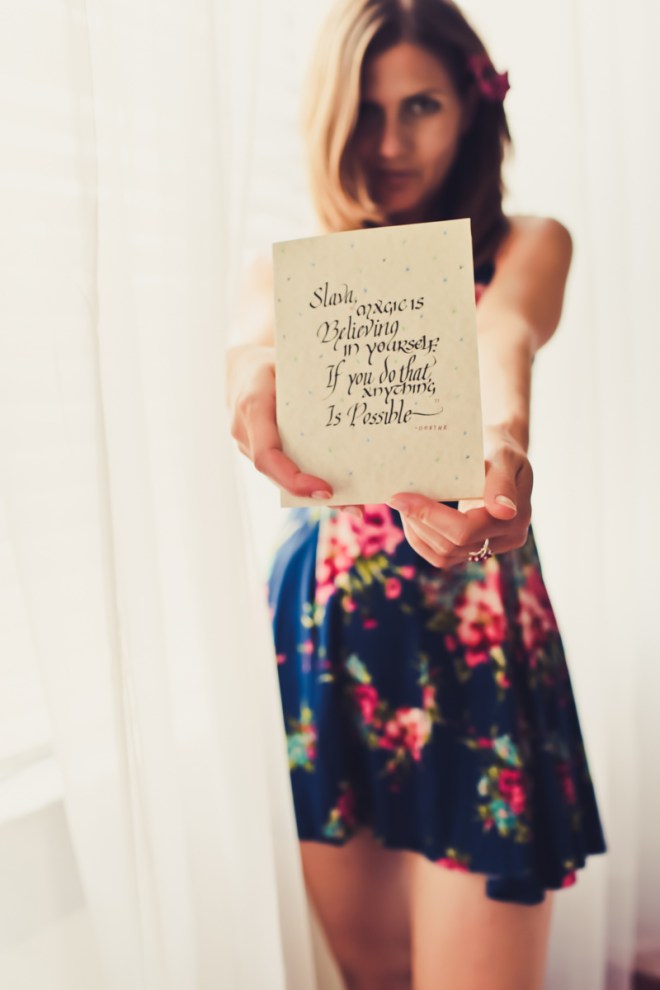 Slava,
magic is
Believing
in yourself.
If you do that,
anything
Is Possible
-Goethe